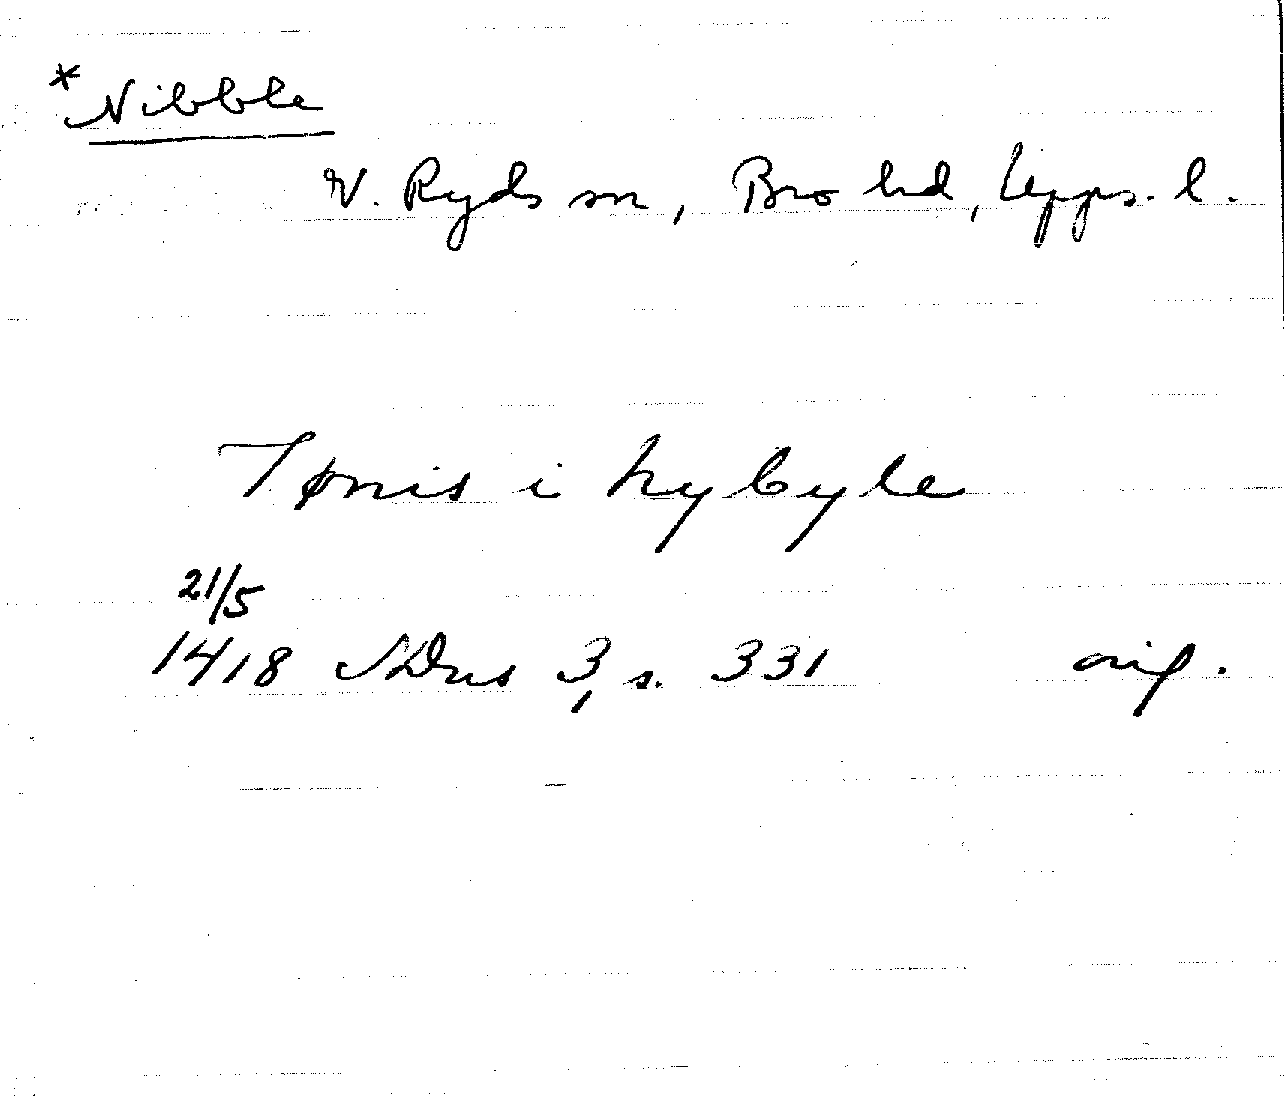 *Nibble
V. Ryds sn, Bro hd, Upps. l.
Tønis i hybyle
21/5
1418 SDns 3, s. 331 orig.